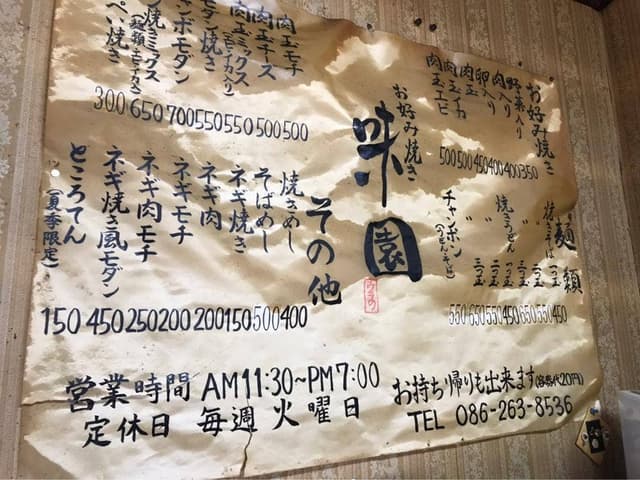 お好み焼き
野菜入り 350
肉入り 400
卵入り 400
肉玉入り 450
肉玉イカ 500
肉玉エビ 500
麺類
焼きそば 一つ玉 450
〃 二つ玉 550
〃 三つ玉 650
焼うどん 一つ玉 450
〃 二つ玉 550
〃 三つ玉 650
チャンポン(うどん・そば) 550
お好み焼き
味園
肉玉モチ 500
肉玉チーズ 500
肉玉ミックス(モチイカ入り) 550
モダン焼き 550
モダン 700
焼きミックス 650
ぺい焼き 300
その他
焼きめし 400
そばめし 500
ネギ焼き 150
ネギ肉 200
ネギモチ 200
ネギ肉モチ 250
ネギ焼き風モダン 450
ところてん(夏季限定) 150
営業時間 AM11:30~PM7:00
定休日 毎週火曜日
お持ち帰りも出来ます(容器代20円)
TEL 086-263-8536